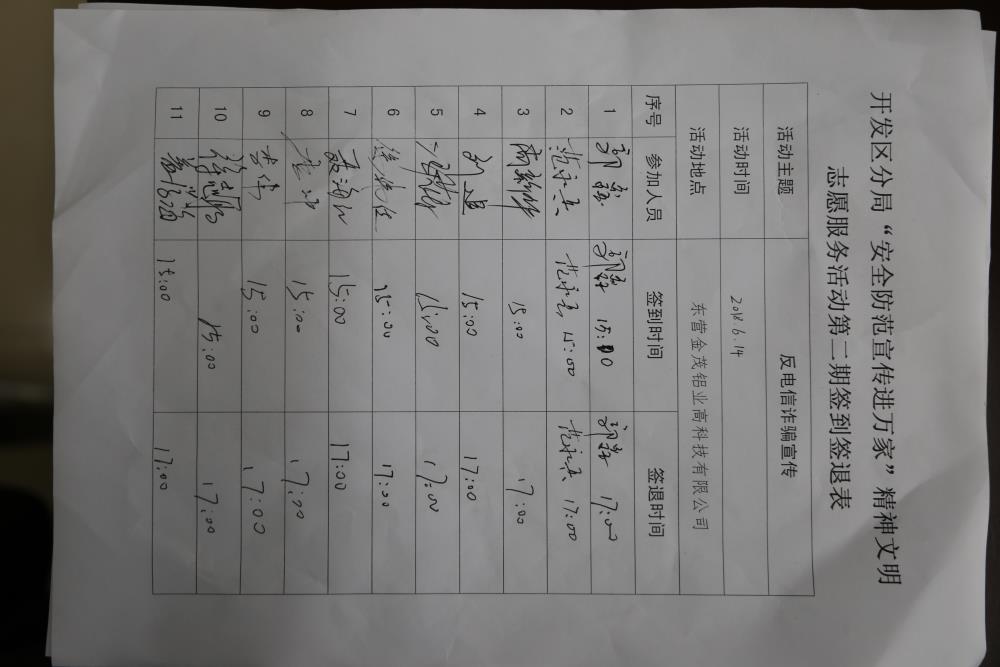 开发区分局“安全防范宣传进万家”精神文明
志愿服务活动第二期签到签退表
活动主题 反电信诈骗宣传
活动时间 2018.6.14
活动地点 东营金茂铝业高科技有限公司
序号 参加人员 签到时间 签退时间
1 15:00 17:00
2 范永兵 范永兵 15:00 范永兵 17:00
3 15:00 17:00
4 15:00 17:00
5 15:00 17:00
6 15:00 17:00
7 15:00 17:00
8 15:00 17:00
9 李伟 15:00 17:00
10 15:00 17:00
11 15:00 17:00